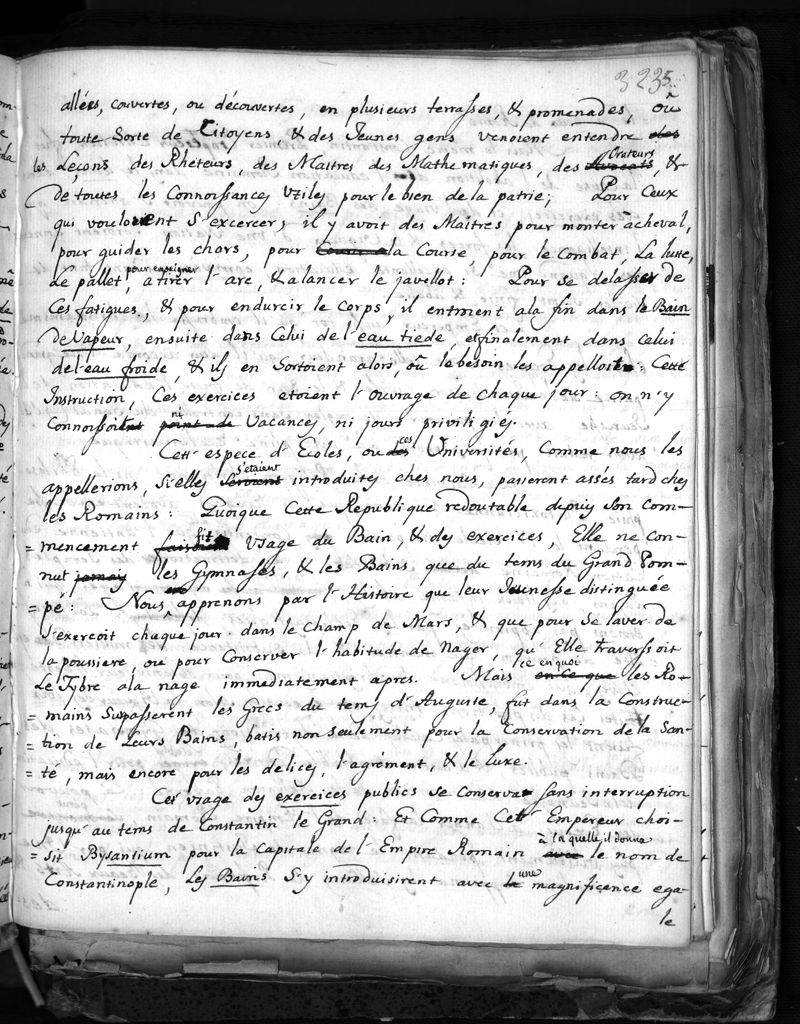 3235
allées, couvertes, ou découvertes, en plusieurs terrasses, & promenades, où
toute Sorte de Citoyens & des Jeunes gens venoient entendre des
les Leçons des Rheteurs, des Maitres des Mathematiques, des Avocats Orateurs, &
de toutes les Connoissances Utiles pour le bien de la patrie; Pour Ceux
qui vouloient S'excercer, il y avoit des Maîtres pour monter àcheval,
pour guider les chars, pour la Course, pour le Combat, La lutte,
Le pallet, pour enseigner à tirer l'arc, & alancer le javellot: Pour se delasser de
Ces fatigues, & pour endurcir le Corps, il entrnent ala fin dans le Bain
de Vapeur, ensuite dans Celui de l'eau tiede, et finalement dans celui
de l'eau froide, & ils en Sortoient alors, où le besoin les appelloit: Cette
Instruction, Ces exercices etoient l'ouvrage de chaque jour: on n'y
Connoissoit point de ni Vacances, ni jours priviligiés.
Cette espece d'Ecoles, ou des ces Universités, Comme nous les
appellerions, Si elles Seroient s'etaient introduites ches nous, passerent assés tard ches
les Romains: Quoique Cette Republique redoutable depuis Son Com-
= mencement faisoit fit Usage du Bain, & des exercices, Elle ne con-
nut jamais les Gymnases, & les Bains que du tems du Grand Pom-
= pé: Nous apprenons par l'Histoire que leur Jeunesse distinguée
S'exercoit chaque jour dans le Champ de Mars, & que pour se laver de
la poussiere, ou pour Conserver l'habitude de Nager, qu'Elle traversoit
Le Tybre ala nage immediatement apres. Mais en Ce que ce en quoi les Ro-
= mains Surpasserent les Grecs du tems d'Auguste, fut dans la Construc-
= tion de Leurs Bains, batis non seulement pour la Conservation de la San-
= té, mais encore pour les delices, l'agrément, & le Luxe.
Cet usage des exercices publics se Conserva Sans interruption
jusqu'au tems de Constantin le Grand: Et Comme Cet Empereur choi-
= sit Bysantium pour la Capitale de l'Empire Romain avec à laquelle il donna le nom de
Constantinople, Les Bains S'y introduisirent avec la une magnificence ega-
le